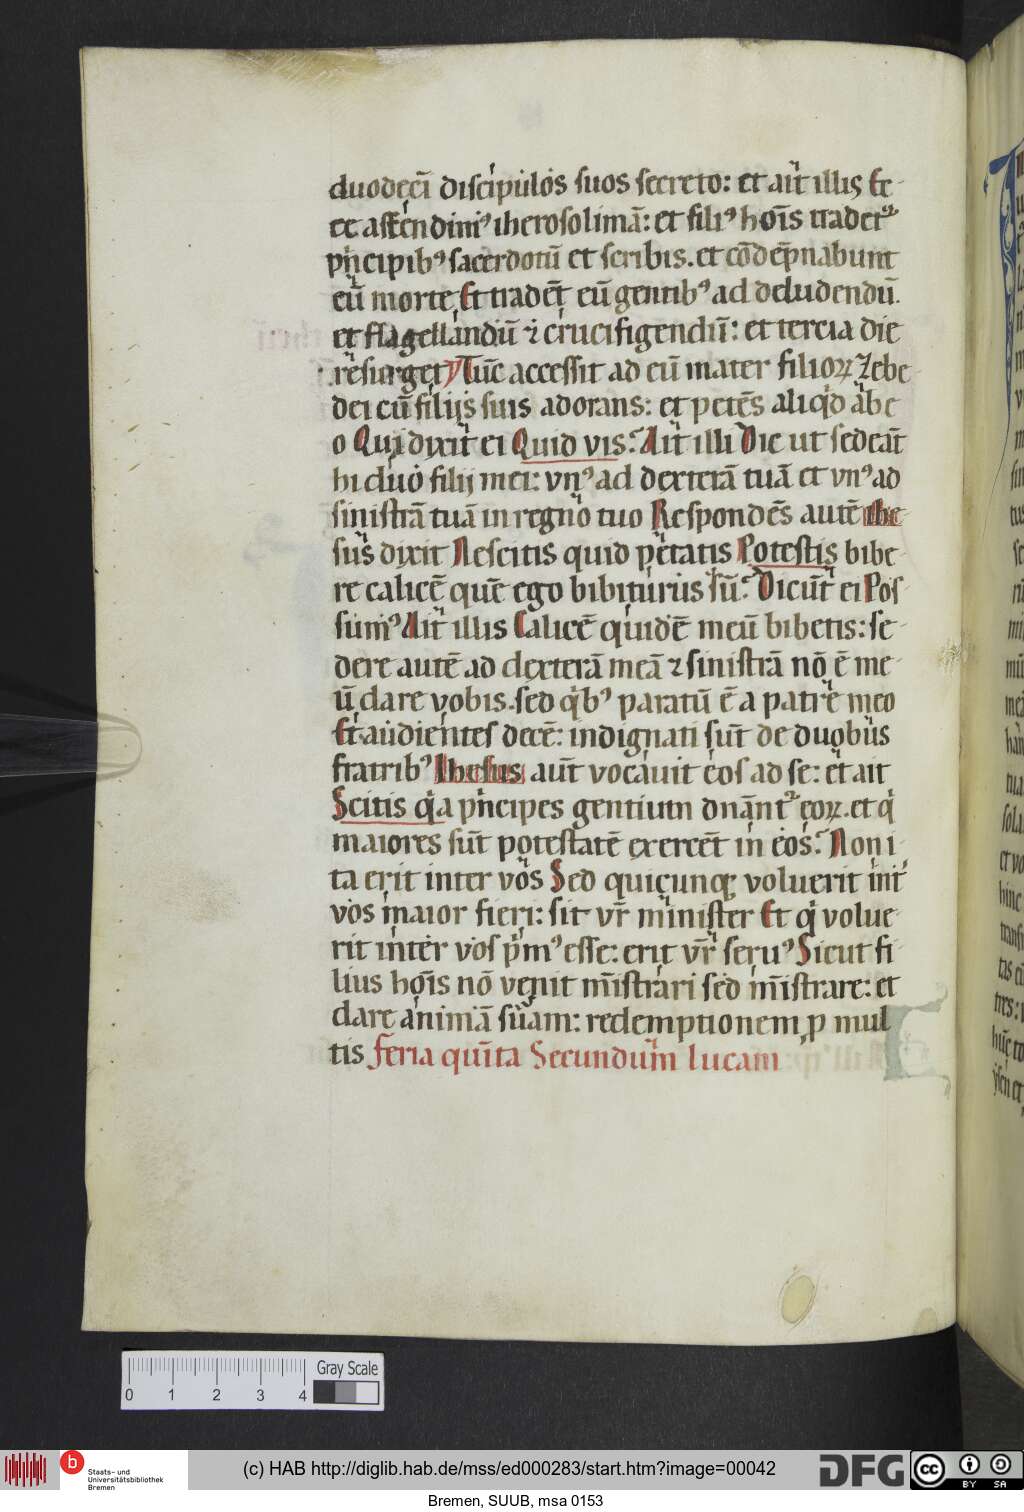 duodecī discipulos suos secreto: et ait̉ illis Ec-
ce ascendim᾽ iherosolimā: et fili᾽ hoīs tradet᷑
p̉ncipib᾽ sacerdotū et scribis. et cōdēpnabunt
eū morte Et tradēt eū gentib᾽ ad deludendū.
et flagellandū ⁊ crucifigendū: et tercia die
resurget Tūc accessit ad eū mater filioꝝ Zebe
dei cū filijs suis adorans: et petēs aliq̇d ab e
o Qui dixit ei Quid vis? Ait̉ illi Dic ut sedeāt
hi duo filij mei: vn᾽ ad dexterā tuā et vn᾽ ad
sinistrā tuā in regno tuo Respondēs autē ihe-
sus dixit Nescitis quid petatis Potestis bibe-
re calicē quē ego bibiturus sū? Dicūt ei Pos-
sum᾽ Ait̉ illis Calicē quidē meū bibetis: se-
dere autē ad dexterā meā ⁊ sinistrā nō ē me-
ū dare vobis. sed q̇b᾽ paratū ē a patre meo
Et audientes decē: indignati sūt de duobus
fratrib᾽ Ihesus aūt vocauit eos ad se: et ait
Scitis q̇a p̉ncipes gentium dnānt᷑ eoꝝ. et q̇
maiores sūt potestatē exercēt in eos? Non i-
ta erit inter vos Sed quicunqꝫ voluerit int̉
vos maior fieri: sit vr̄ minister Et q̇ volue-
rit inter vos p̉m᾽ esse: erit vr̄ seru᾽ Sicut fi-
lius hoīs nō venit mīstrari sed mīstrare: et
dare animā suam: redemptionem ꝓ mul
tis feria quīta Secundum lucam
0 1 2 3 4
Gray Scale
b
Staats- und
Universitätsbibliothek
Bremen
(c) HAB http://diglib.hab.de/mss/ed000283/start.htm?image=00042
DFG
cc BY SA
Bremen, SUUB, msa 0153